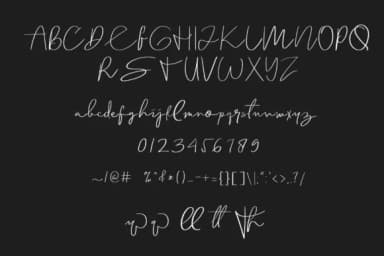 ABCDEFGHIJKLMNOPQ
RSTUVWXYZ
abcdefghijklmnopqrstuvwxyz
0123456789
~!@# %^&*()_-+={}[]\|,":'<>,.?/